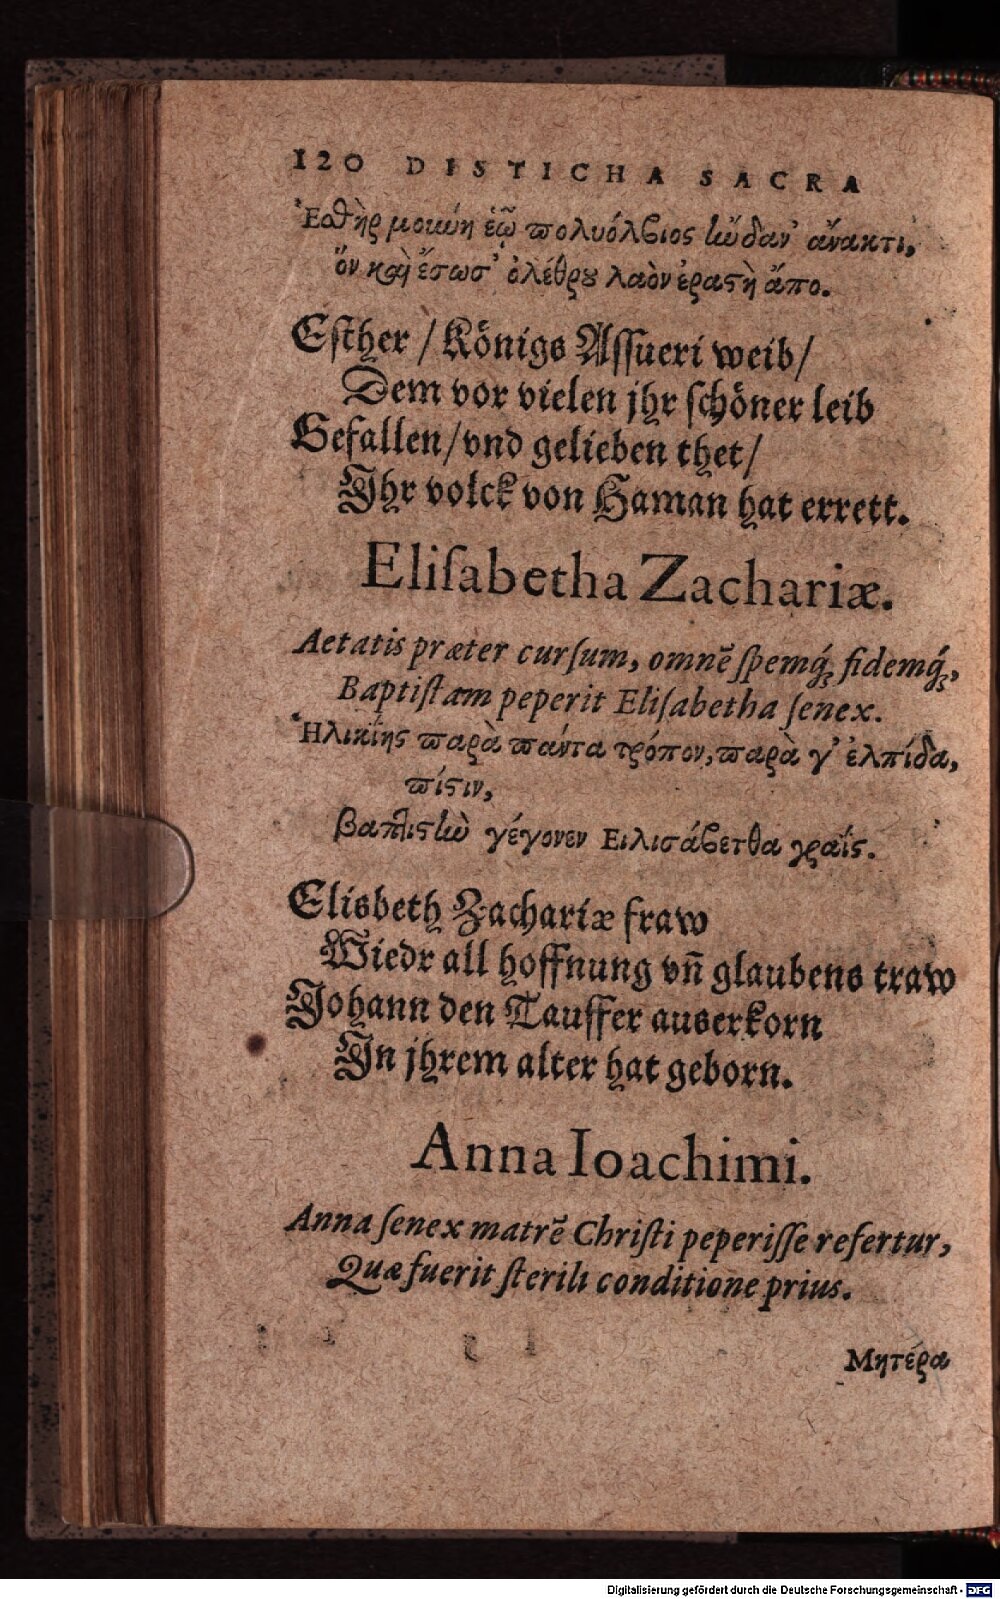 120 DISTICHA SACRA
Ἐσθὴρ μούνη ἑῷ πολυόλβιος ἥνδαν' ἄνακτι,
ὅν καὶ ἔσωσ' ὀλέθρου λαὸν ἐραστὴ ἄπο.
Esther / Königs Assueri weib /
Dem vor vielen jhr schöner leib
Gefallen / vnd gelieben thet /
Jhr volck von Haman hat errett.
Eliſabetha Zachariæ.
Aetatis præter curſum, omnẽ ſpemq́;, fidemq́;,
Baptiſtam peperit Eliſabetha ſenex.
Ἡλικίης παρὰ πάντα τρόπον, παρὰ γ' ἐλπίδα,
πίστιν,
βαπτιστὴν γέγονεν Ειλισάβετθα γραΐς.
Elisbeth Zachariæ fraw
Wiedr all hoffnung vñ glaubens traw
Johann den Tauffer auserkorn
Jn jhrem alter hat geborn.
Anna Ioachimi.
Anna ſenex matrẽ Chriſti peperiſſe refertur,
Quæ fuerit ſterili conditione prius.
Μητέρα
Digitalisierung gefördert durch die Deutsche Forschungsgemeinschaft - DFG